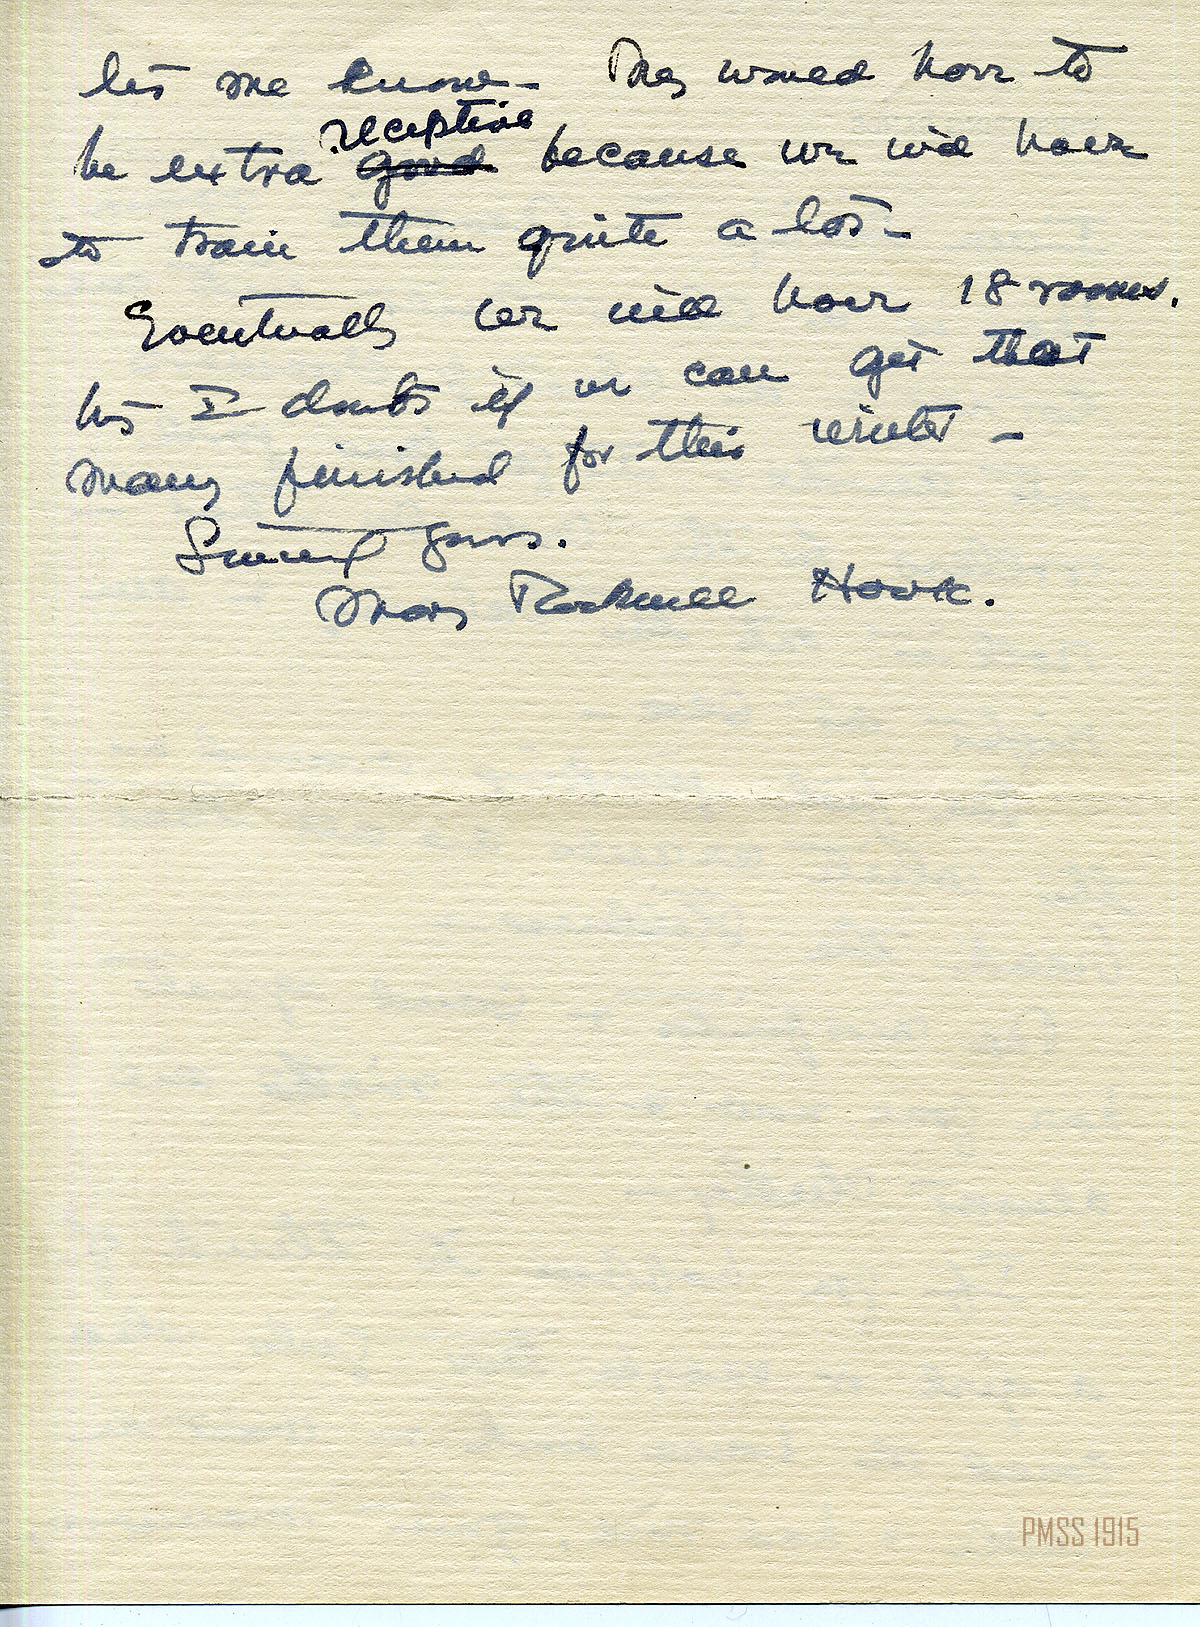 let me know - They would have to
receptive
be extra good because we will have
to train them quite a lot -
Eventually we will have 18 rooms.
but I doubt if we can get that
many finished for this winter -
Sincerely yours.
Mary Rockwell Hook.
PMSS 1915